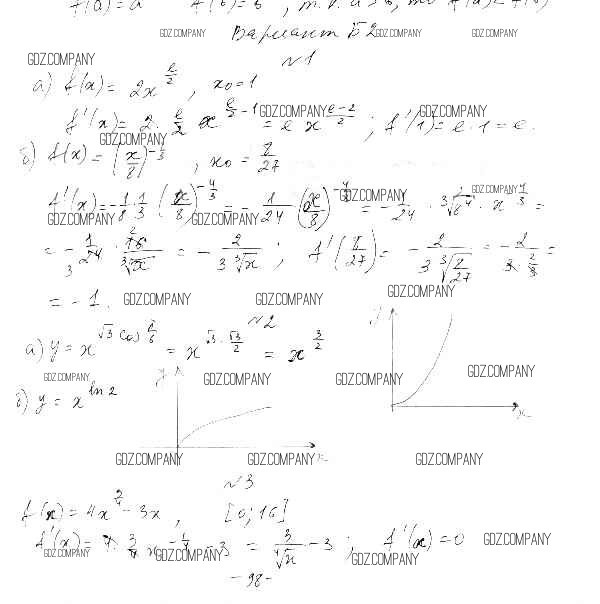 f(a) = a    f(b) = b, т.к. a > b, то f(a) > f(b)
GDZ.COMPANY Вариант Б2 GDZ.COMPANY GDZ.COMPANY
GDZ.COMPANY №1
а) f(x) = 2x^(e/2), x₀ = 1
f'(x) = 2 · e/2 x^(e/2 - 1) = e x^((e-2)/2); f'(1) = e · 1 = e.
GDZ.COMPANY GDZ.COMPANY GDZ.COMPANY
б) f(x) = (x/8)^(-1/3), x₀ = 8/27
f'(x) = -1/8 · 1/3 (x/8)^(-4/3) = -1/24 (x/8)^(-4/3) = -1/24 ·
GDZ.COMPANY GDZ.COMPANY GDZ.COMPANY GDZ.COMPANY
= - = -2/(3∛x); f'(8/27) = -2/(3∛(8/27)) = =
= -1. GDZ.COMPANY GDZ.COMPANY GDZ.COMPANY
№2
а) y = x^(√3 cos π/6) = x^(√3 · √3/2) = x^(3/2)
GDZ.COMPANY GDZ.COMPANY GDZ.COMPANY GDZ.COMPANY
б) y = x^(ln 2)
y
x
y
x
GDZ.COMPANY GDZ.COMPANY GDZ.COMPANY
№3
f(x) = 4x^(3/4) - 3x, [0; 16]
f'(x) = 4 · 3/4 x^(-1/4) - 3 = 3/⁴√x - 3; f'(x) = 0 GDZ.COMPANY
GDZ.COMPANY GDZ.COMPANY GDZ.COMPANY
- 98 -